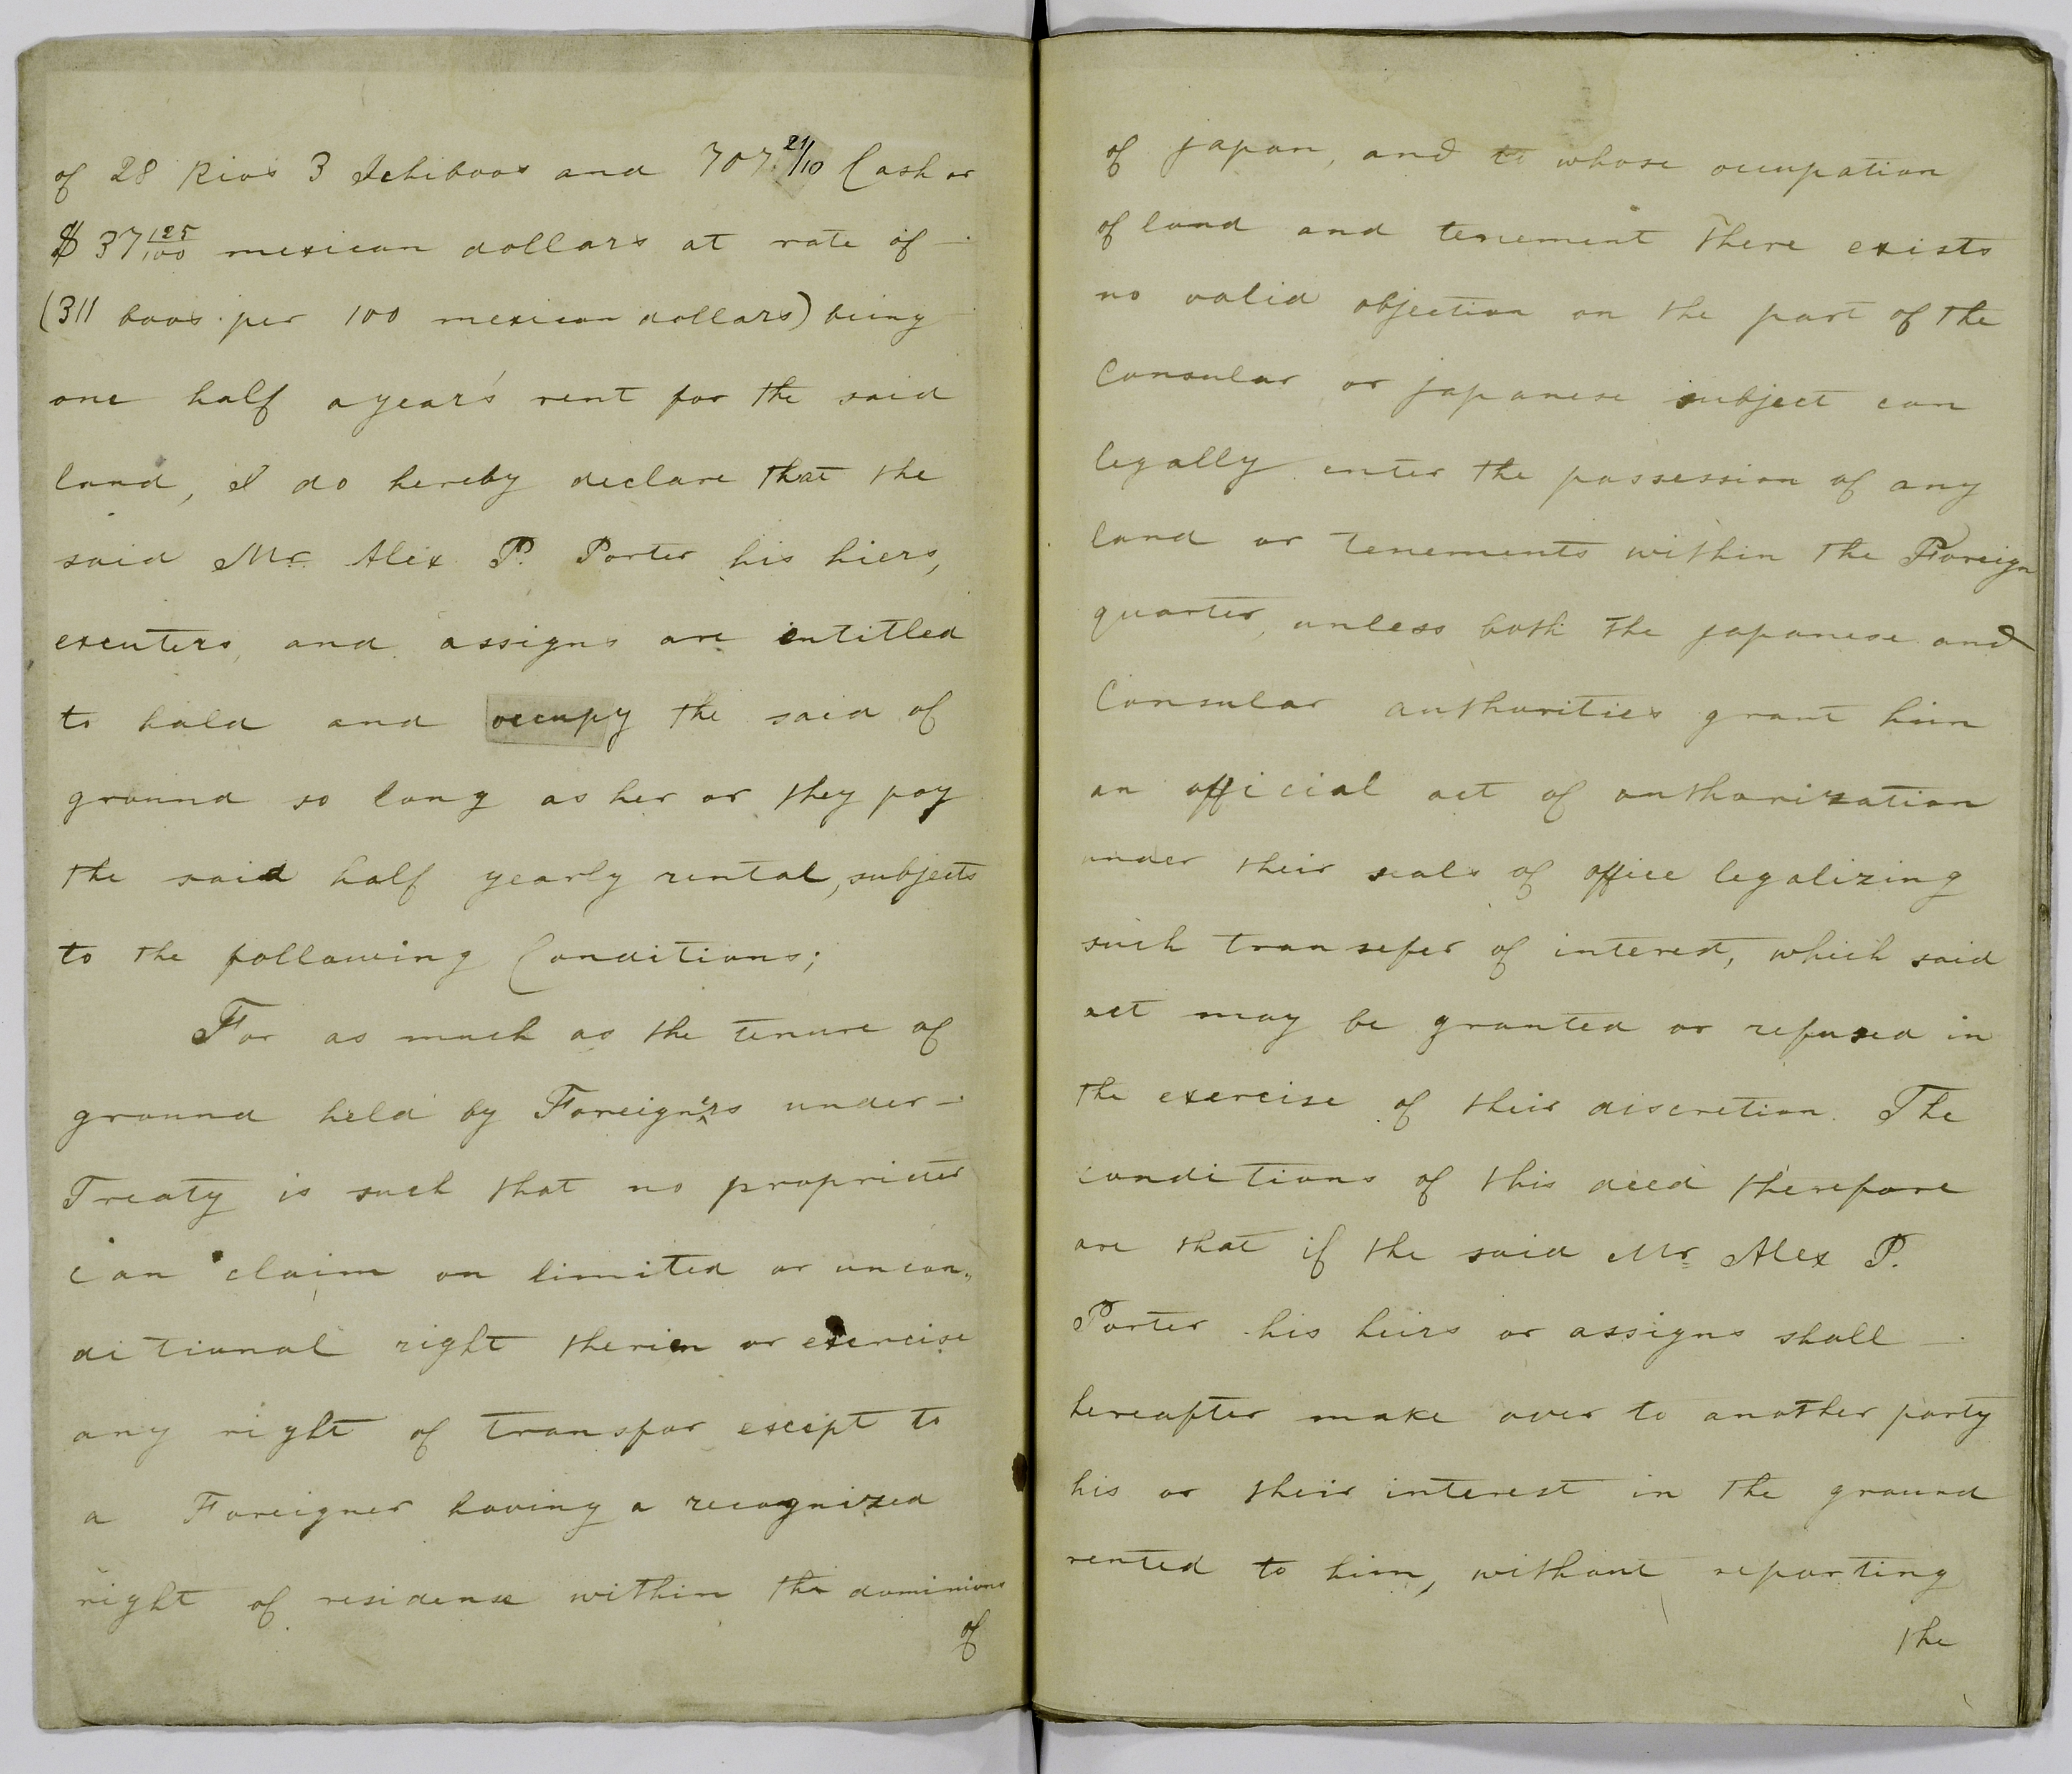 of 28 Rios 3 Ichiboos and 707.21/10 Cash or
$ 37 125/100 mexican dollars at rate of —
(311 boos per 100 mexican dollars) being
one half a year's rent for the said
land, I do hereby declare that the
said Mr. Alex P. Porter his hiers,
excuters, and assigns are entitled
to hold and occupy the said of
ground so long as her or they pay
the said half yearly rental, subjects
to the following Conditions;
For as much as the tenure of
ground held by Foreigners under —
Treaty is such that no proprieter
can claim an limited or uncon„
ditional right therien or exercise
any right of transfar except to
a Foreigner having a recognized
right of residense within the dominions
of
of japan, and to whose occupation
of land and tenement there exists
no valid objection on the part of the
Consular or japanese subject can
legally enter the possession of any
land or tenements within the Foreign
quarter, unless both the japanese and
Consular authorities grant him
an official act of authorization
under their seals of office legalizing
such transefer of interest, which said
act may be granted or refused in
the exercise of their discretion. The
conditions of this deed therefore
are that if the said Mr. Alex P.
Porter his heirs or assigns shall —
hereafter make over to another party
his or their interest in the ground
rented to him, without reporting
the